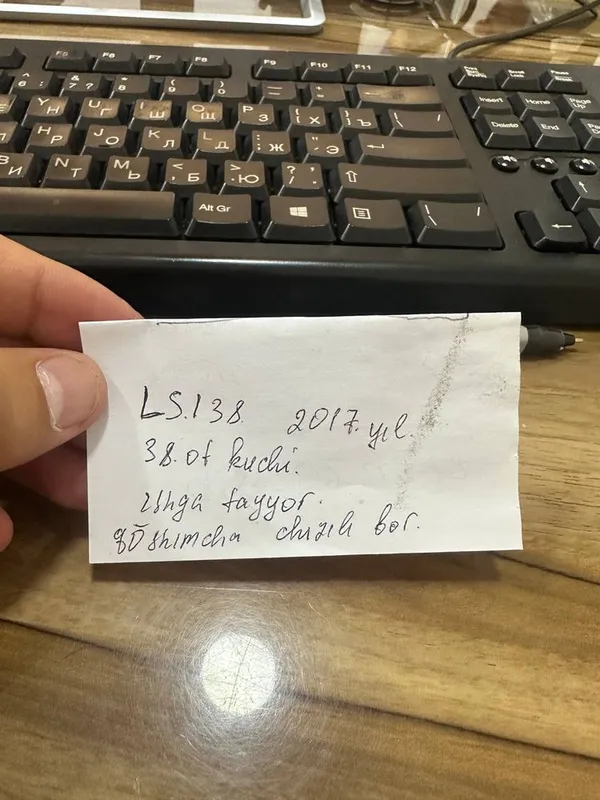 F5 F6 F7 F8 F9 F10 F11 F12
Insert Home Page Up
Delete End
Alt Gr
LS.138 2017.yil.
38.ot kuchi.
ishga tayyor.
qōshimcha chizik bor.